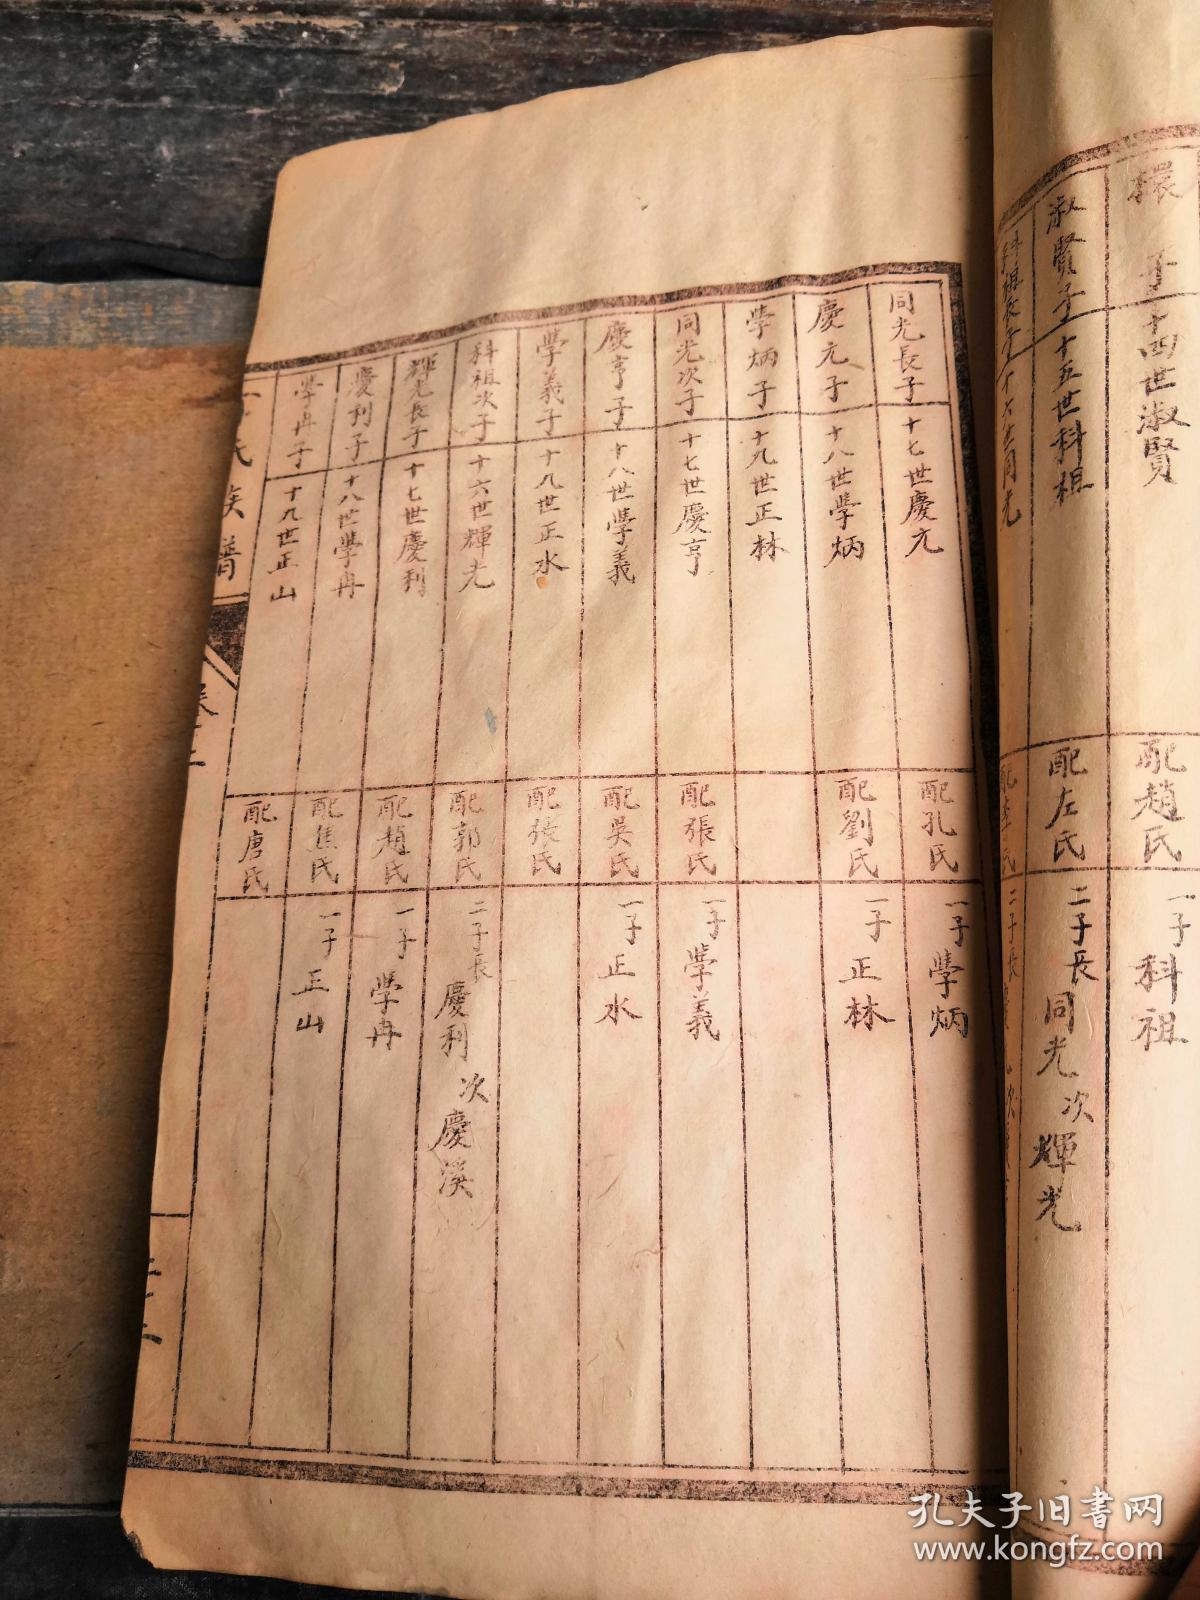 環子 十四世淑賢 配趙氏 一子科祖
淑賢子 十五世科祖 配左氏 二子長同光次輝光
科祖長子 十六世同光 配李氏 二子長慶元次慶亨
同光長子 十七世慶元 配孔氏 一子學炳
慶元子 十八世學炳 配劉氏 一子正林
學炳子 十九世正林
同光次子 十七世慶亨 配張氏 一子學義
慶亨子 十八世學義 配吳氏 一子正水
學義子 十九世正水 配張氏
科祖次子 十六世輝光 配郭氏 二子長慶利次慶溪
輝光長子 十七世慶利 配趙氏 一子學冉
慶利子 十八世學冉 配焦氏 一子正山
學冉子 十九世正山 配唐氏
氏族譜
孔夫子旧書网
www.kongfz.com